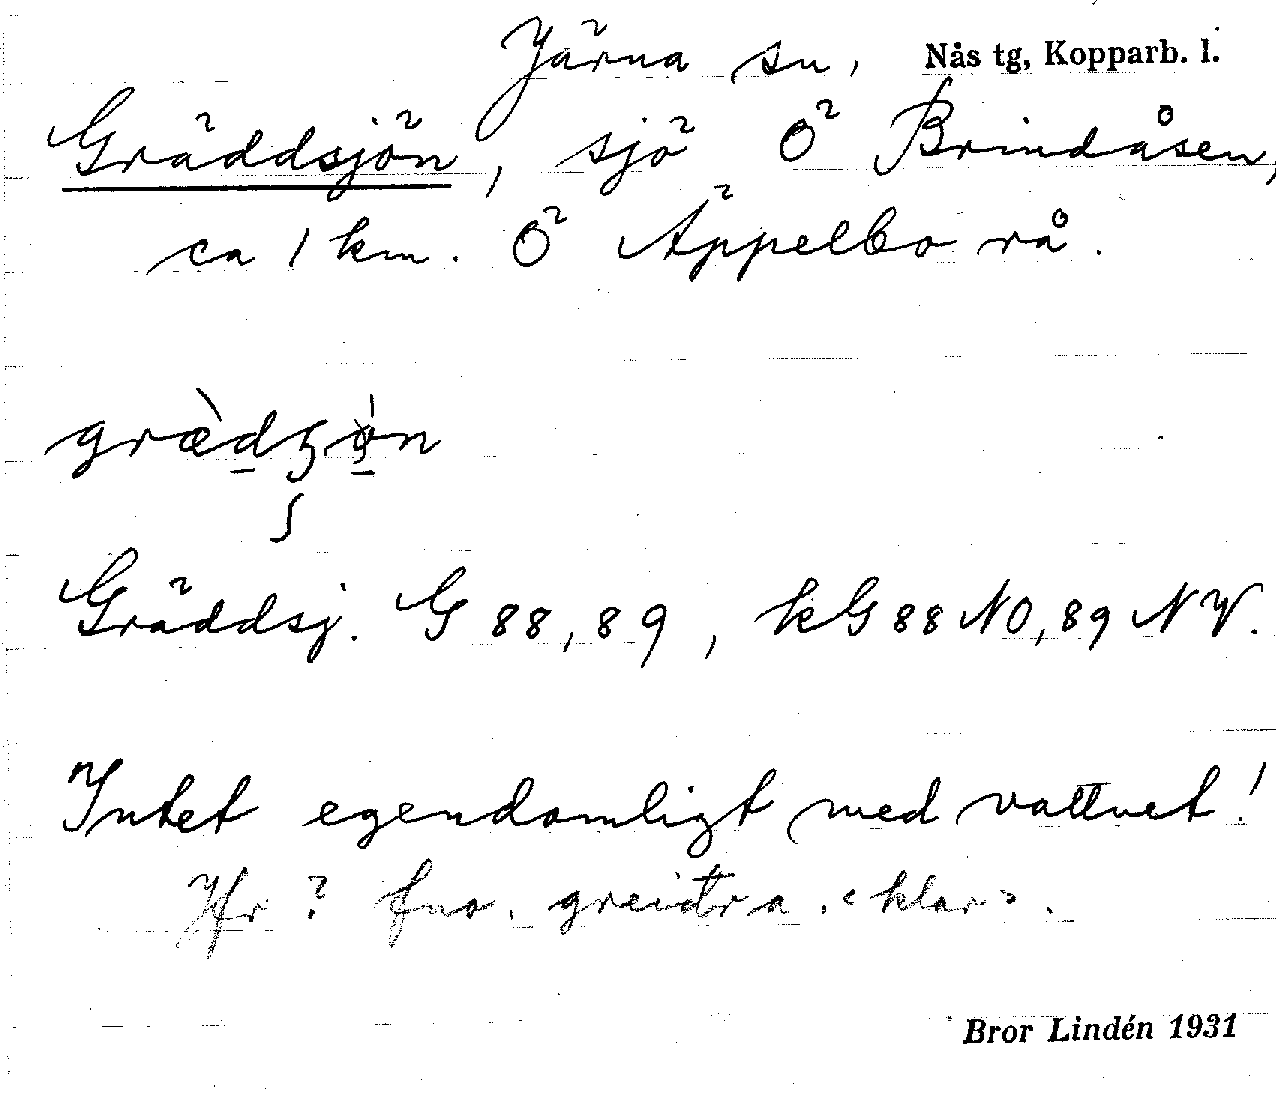 Järna sn, Nås tg, Kopparb. l.
Gräddsjön, sjö Ö Brindåsen,
ca 1 km. Ö Äppelbo rå.
Gräddsj. G 88, 89, kG 88 NO, 89 NV.
Intet egendomligt med vattnet!
Jfr ? fno. greiðra "klar".
Bror Lindén 1931